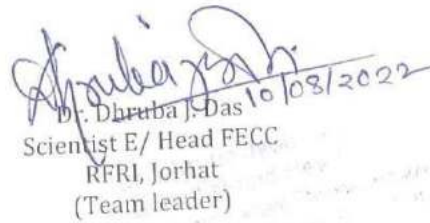 10/08/2022
Dr. Dhruba J. Das
Scientist E/ Head FECC
RFRI, Jorhat
(Team leader)